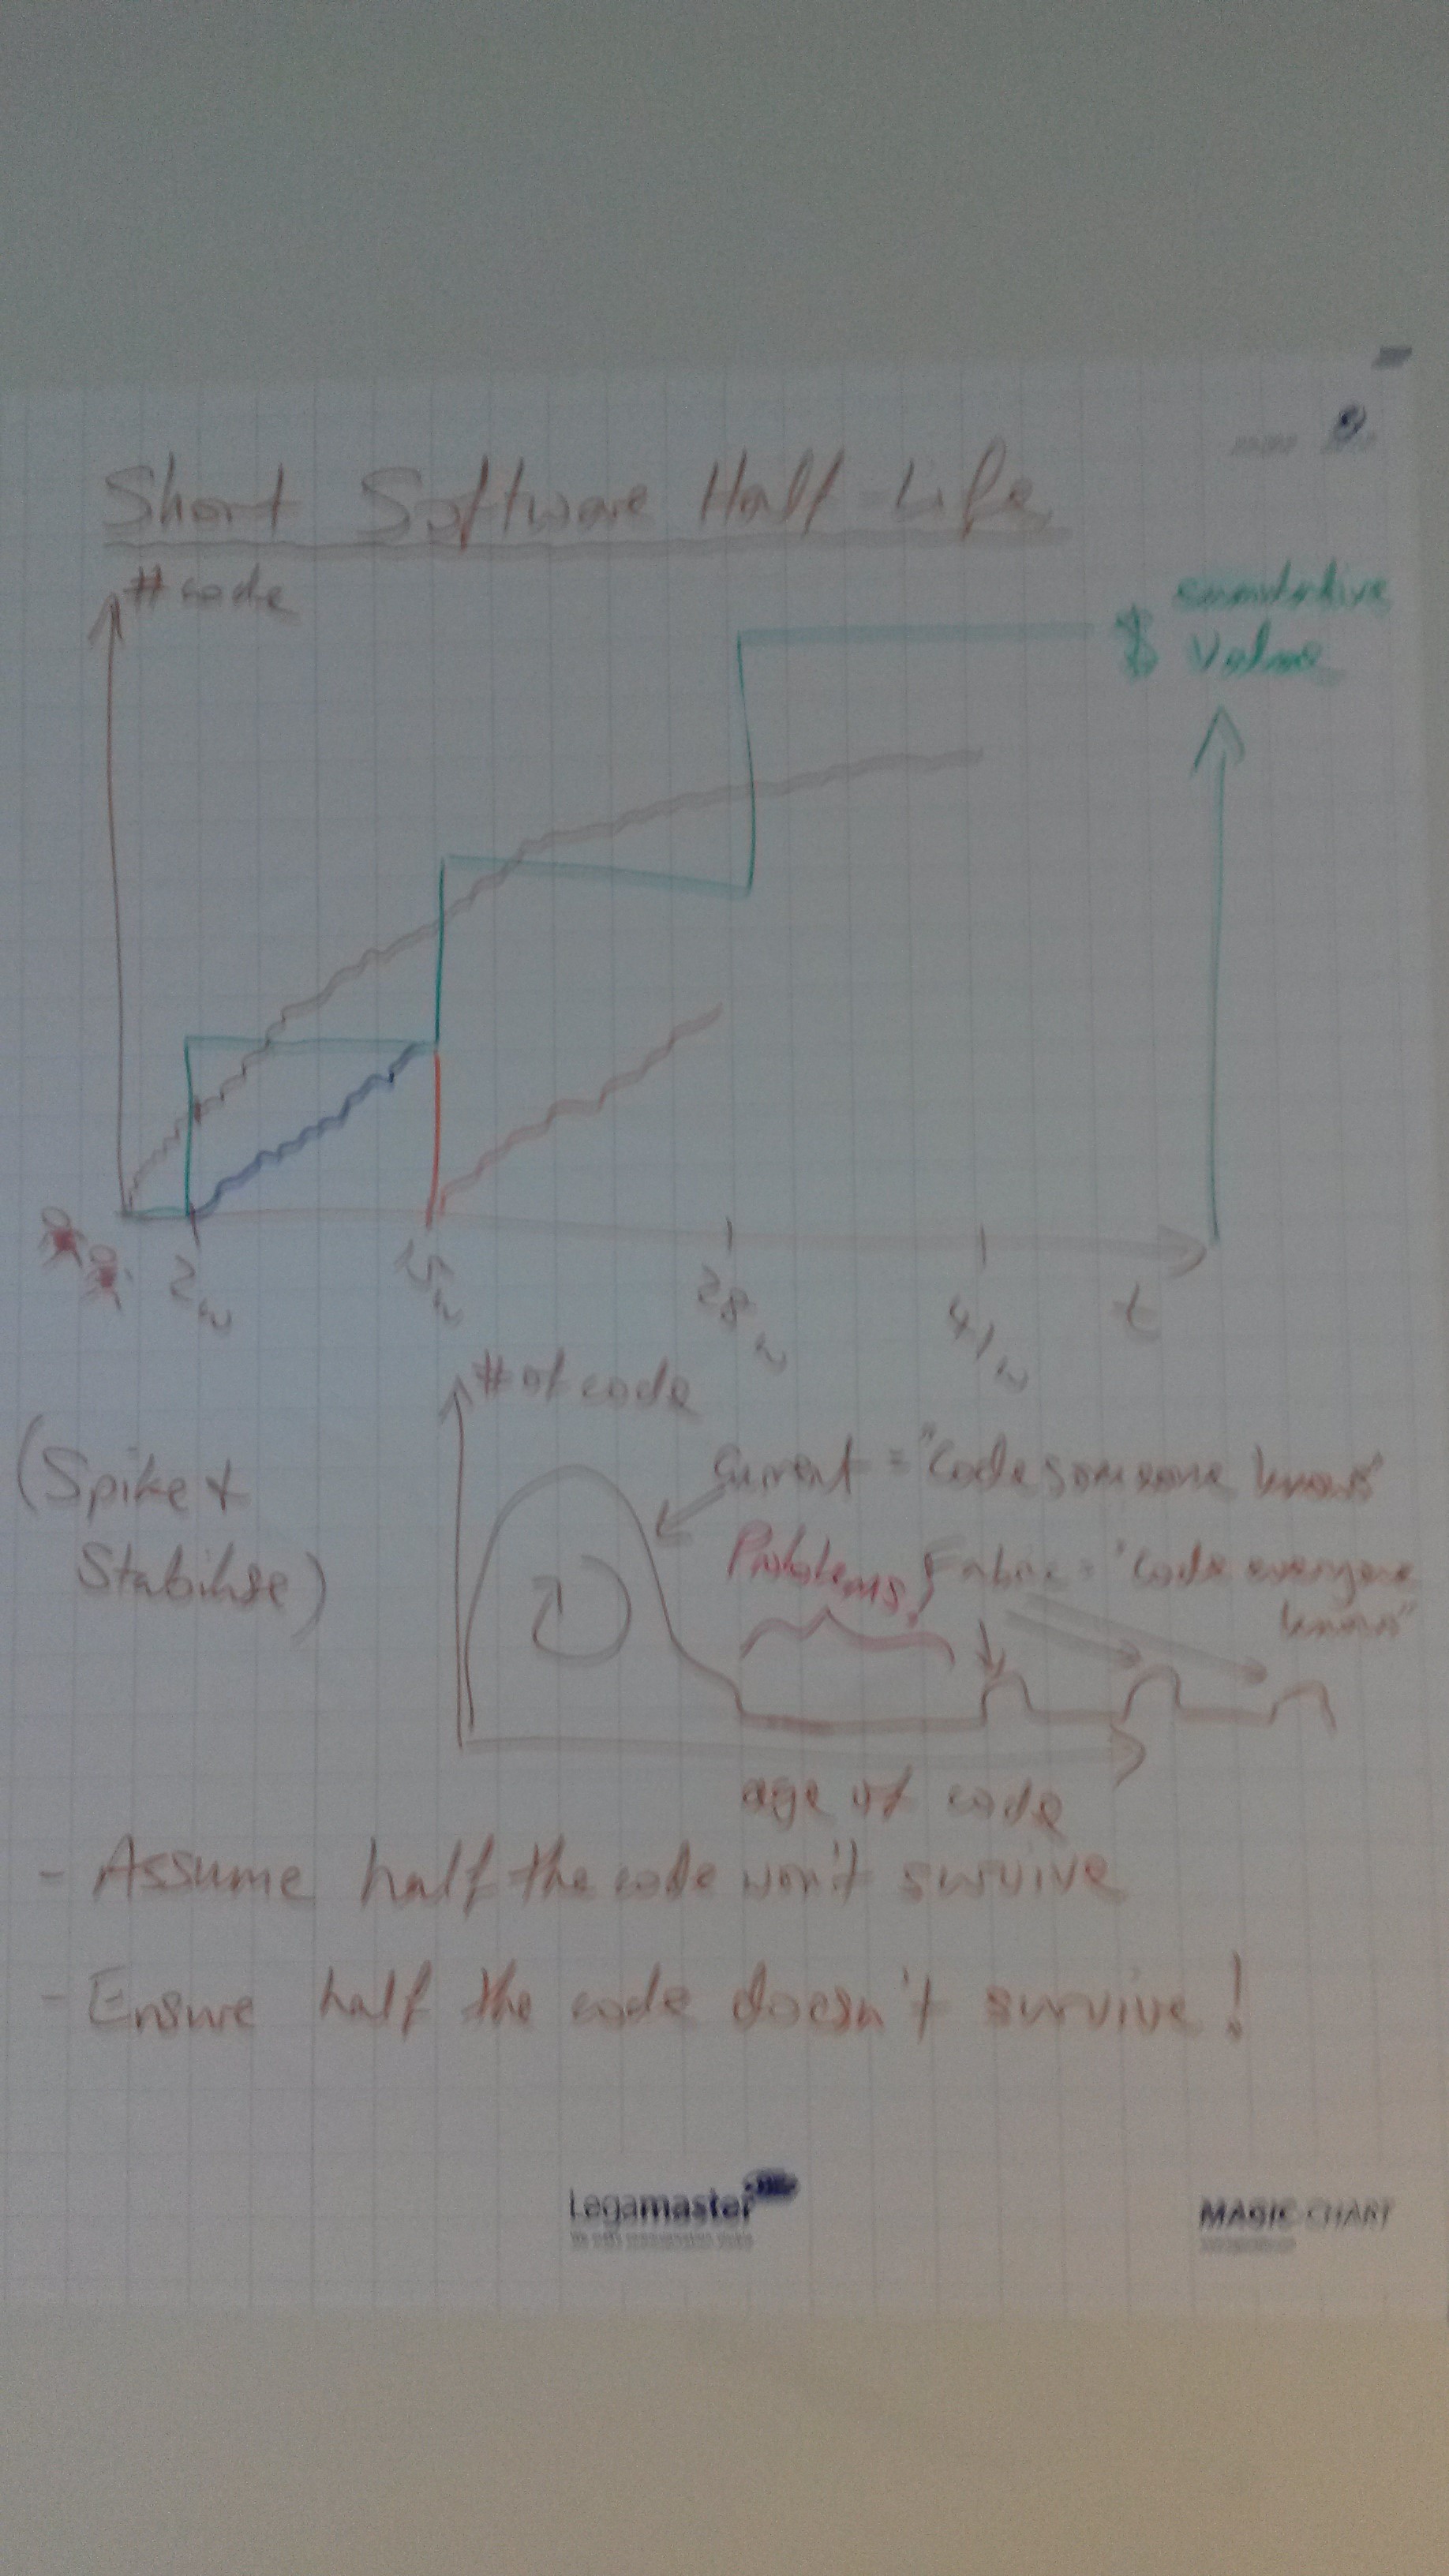 Short Software Half-Life
# code
cumulative
$ Value
2w
15w
28w
41w
t
# of code
(Spike &
Stabilise)
Current = "code someone knows"
Problems!
Fabric = "code everyone
knows"
age of code
- Assume half the code won't survive
- Ensure half the code doesn't survive!
Legamaster
MAGIC-CHART